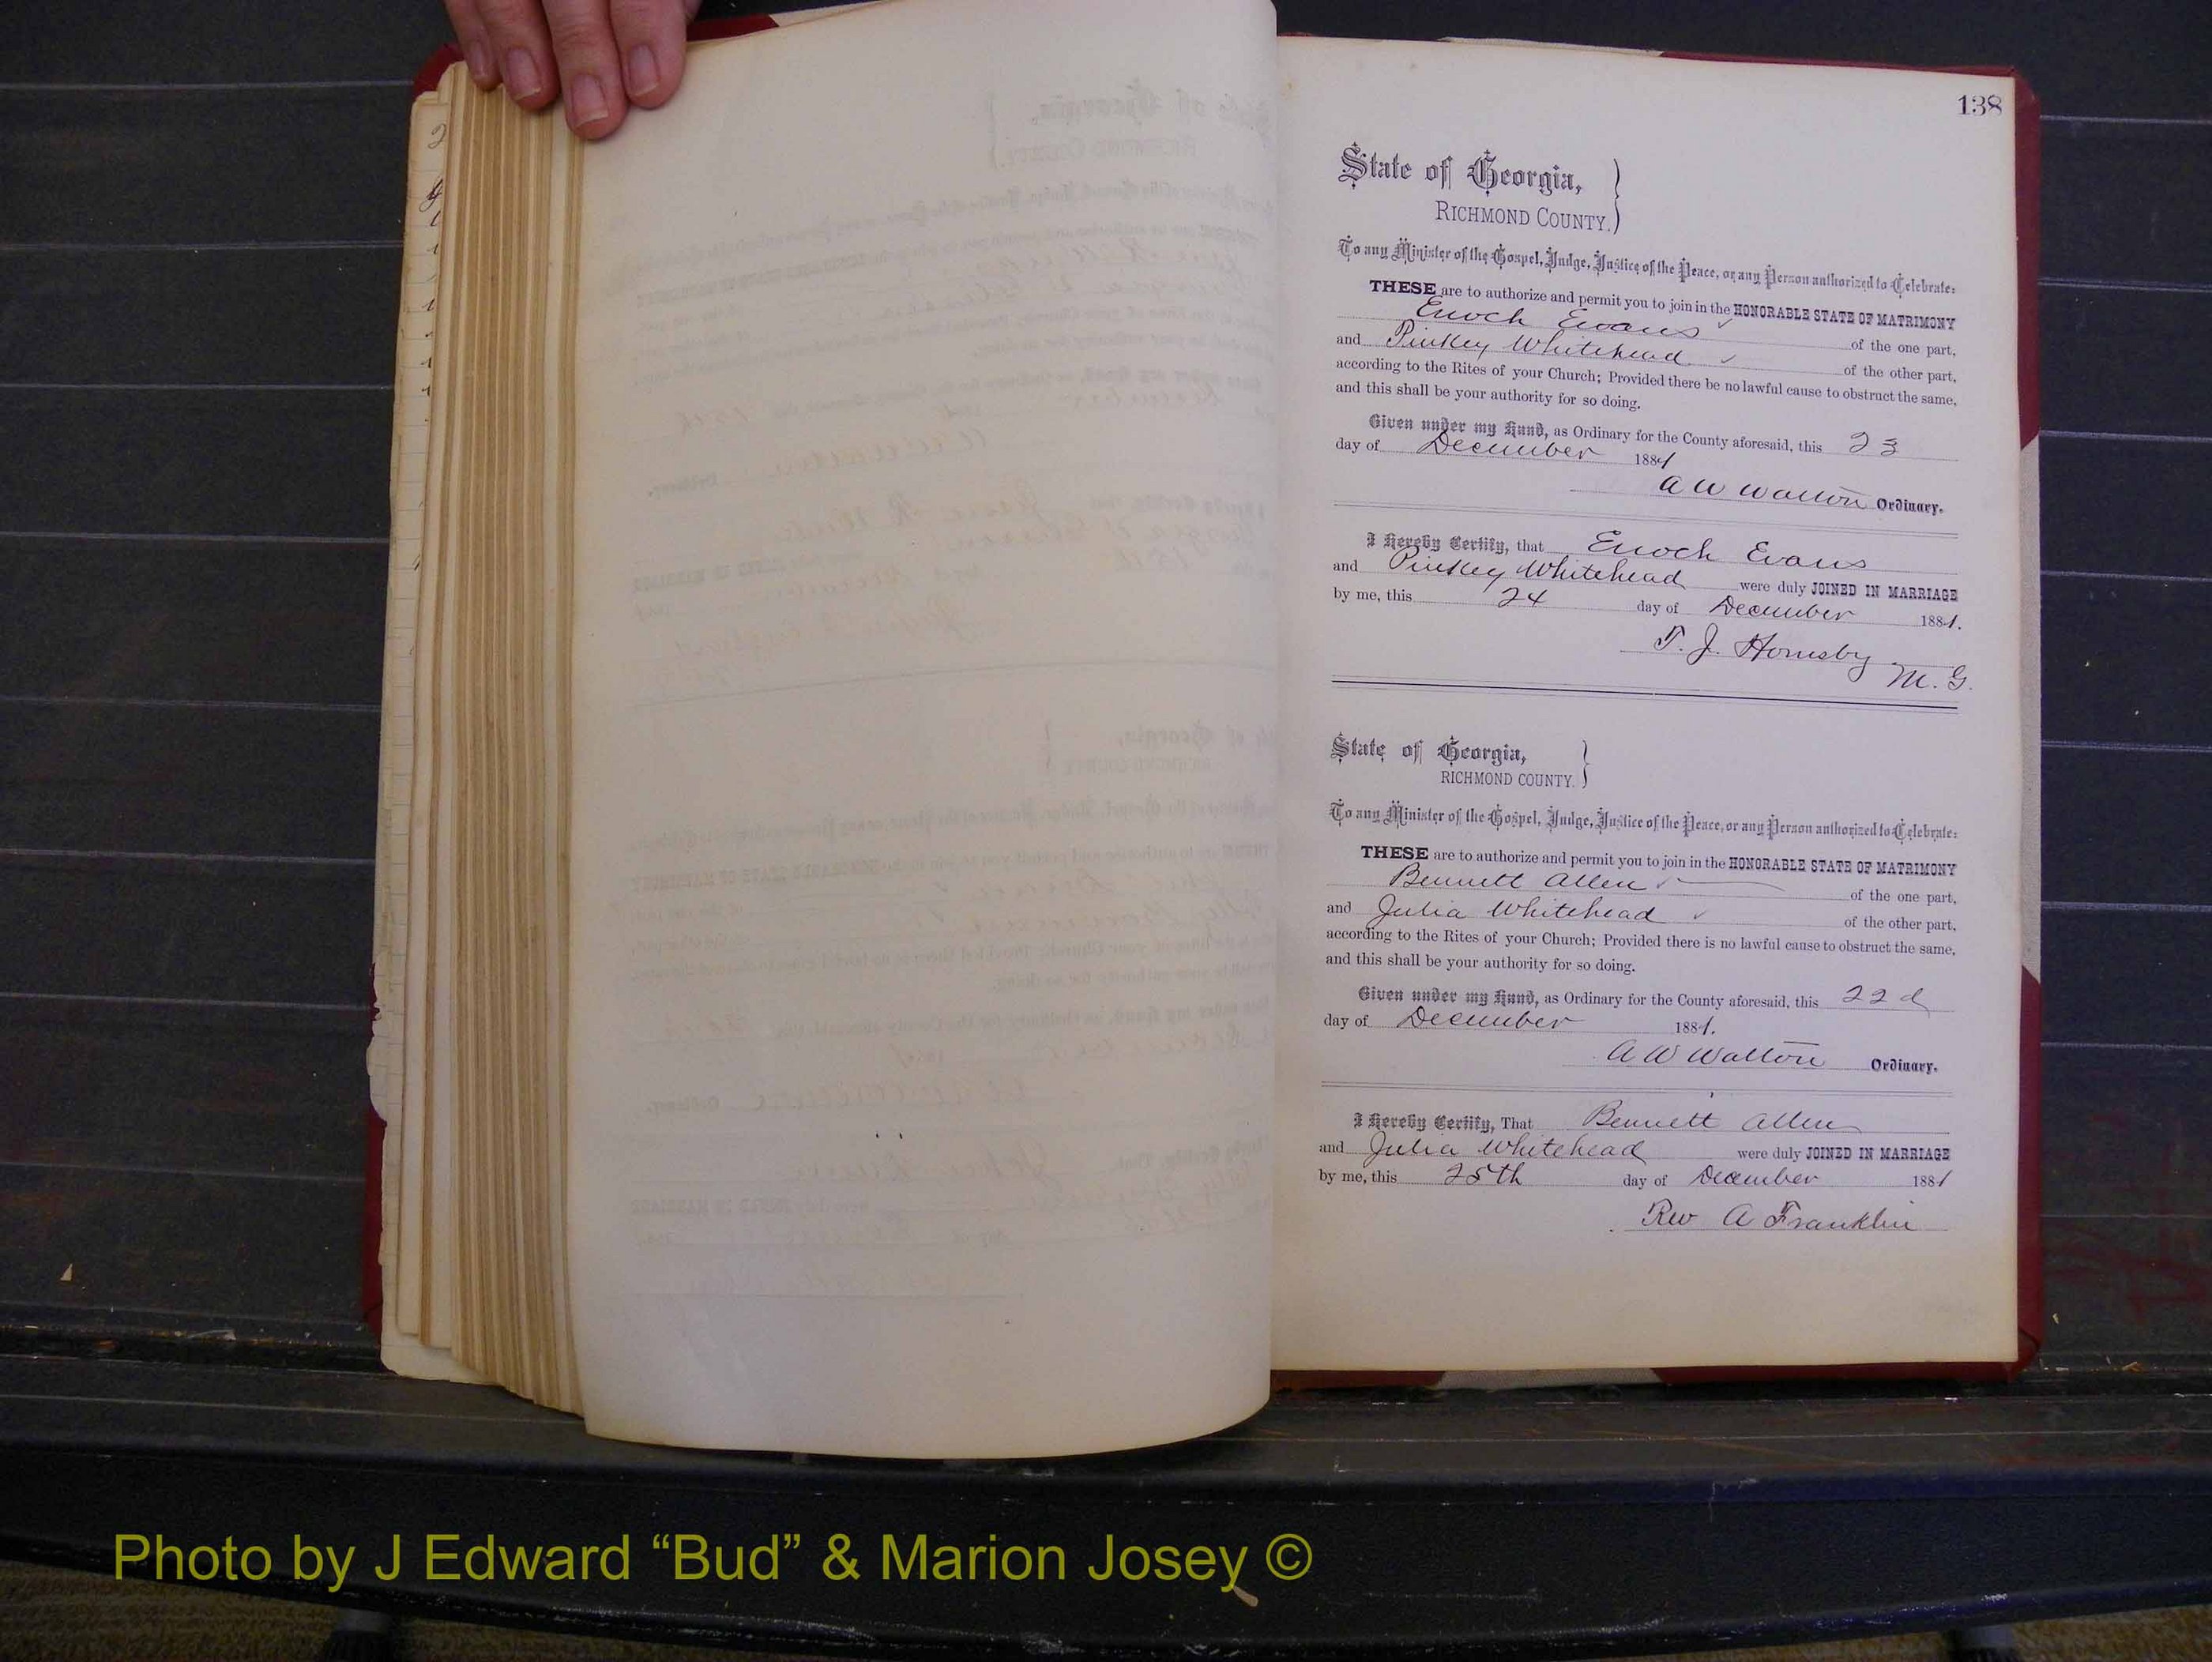 138
State of Georgia,
RICHMOND COUNTY.
To any Minister of the Gospel, Judge, Justice of the Peace, or any Person authorized to Celebrate:
THESE are to authorize and permit you to join in the HONORABLE STATE OF MATRIMONY
Enoch Evans of the one part,
and Pinkey Whitehead of the other part,
according to the Rites of your Church; Provided there be no lawful cause to obstruct the same,
and this shall be your authority for so doing.
Given under my Hand, as Ordinary for the County aforesaid, this 23
day of December 1881
A W Walton Ordinary.
I Hereby Certify, that Enoch Evans
and Pinkey Whitehead were duly JOINED IN MARRIAGE
by me, this 24 day of December 1881.
T. J. Hornsby
M. G.
State of Georgia,
RICHMOND COUNTY.
To any Minister of the Gospel, Judge, Justice of the Peace, or any Person authorized to Celebrate:
THESE are to authorize and permit you to join in the HONORABLE STATE OF MATRIMONY
Bennett Allen of the one part,
and Julia Whitehead of the other part,
according to the Rites of your Church; Provided there is no lawful cause to obstruct the same,
and this shall be your authority for so doing.
Given under my Hand, as Ordinary for the County aforesaid, this 22d
day of December 1881.
A W Walton Ordinary.
I Hereby Certify, That Bennett Allen
and Julia Whitehead were duly JOINED IN MARRIAGE
by me, this 25th day of December 1881
Rev A Franklin
Photo by J Edward “Bud” & Marion Josey ©